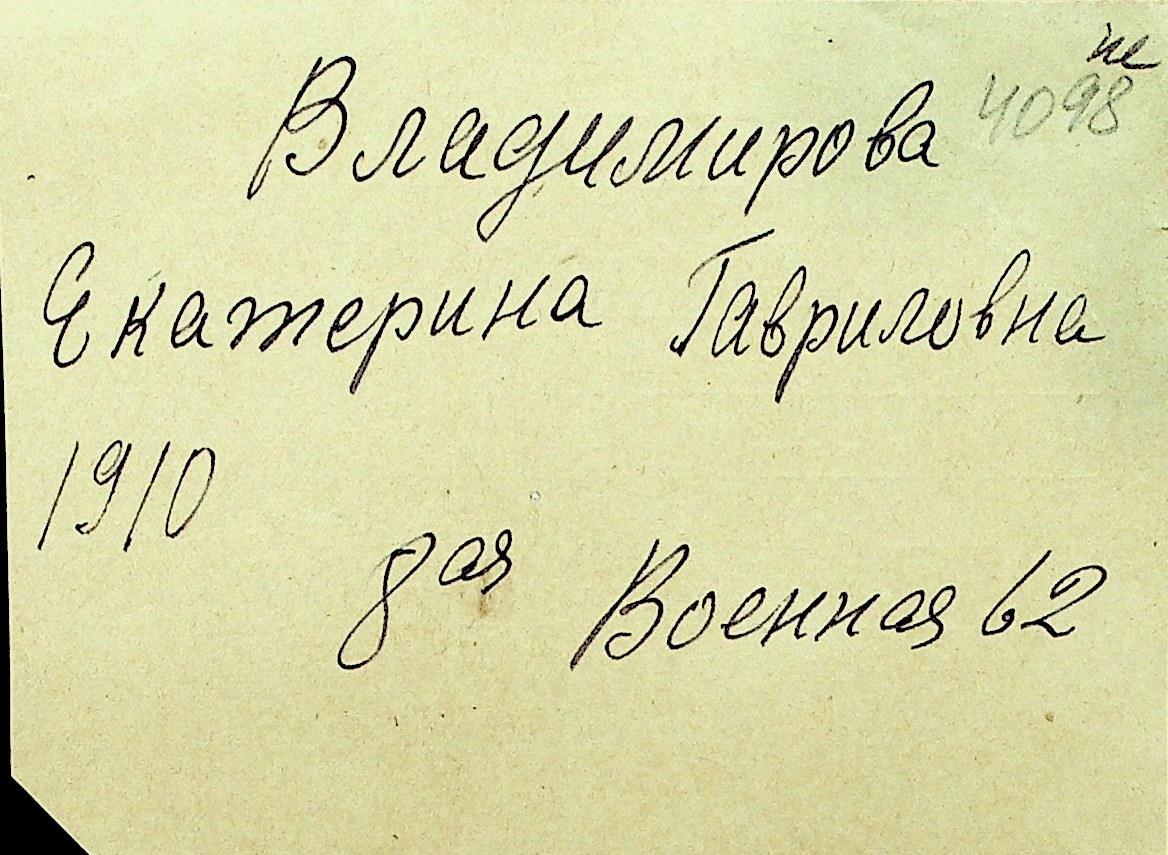 не
Владимирова 4098
Екатерина Гавриловна
1910
8ая Военная 62